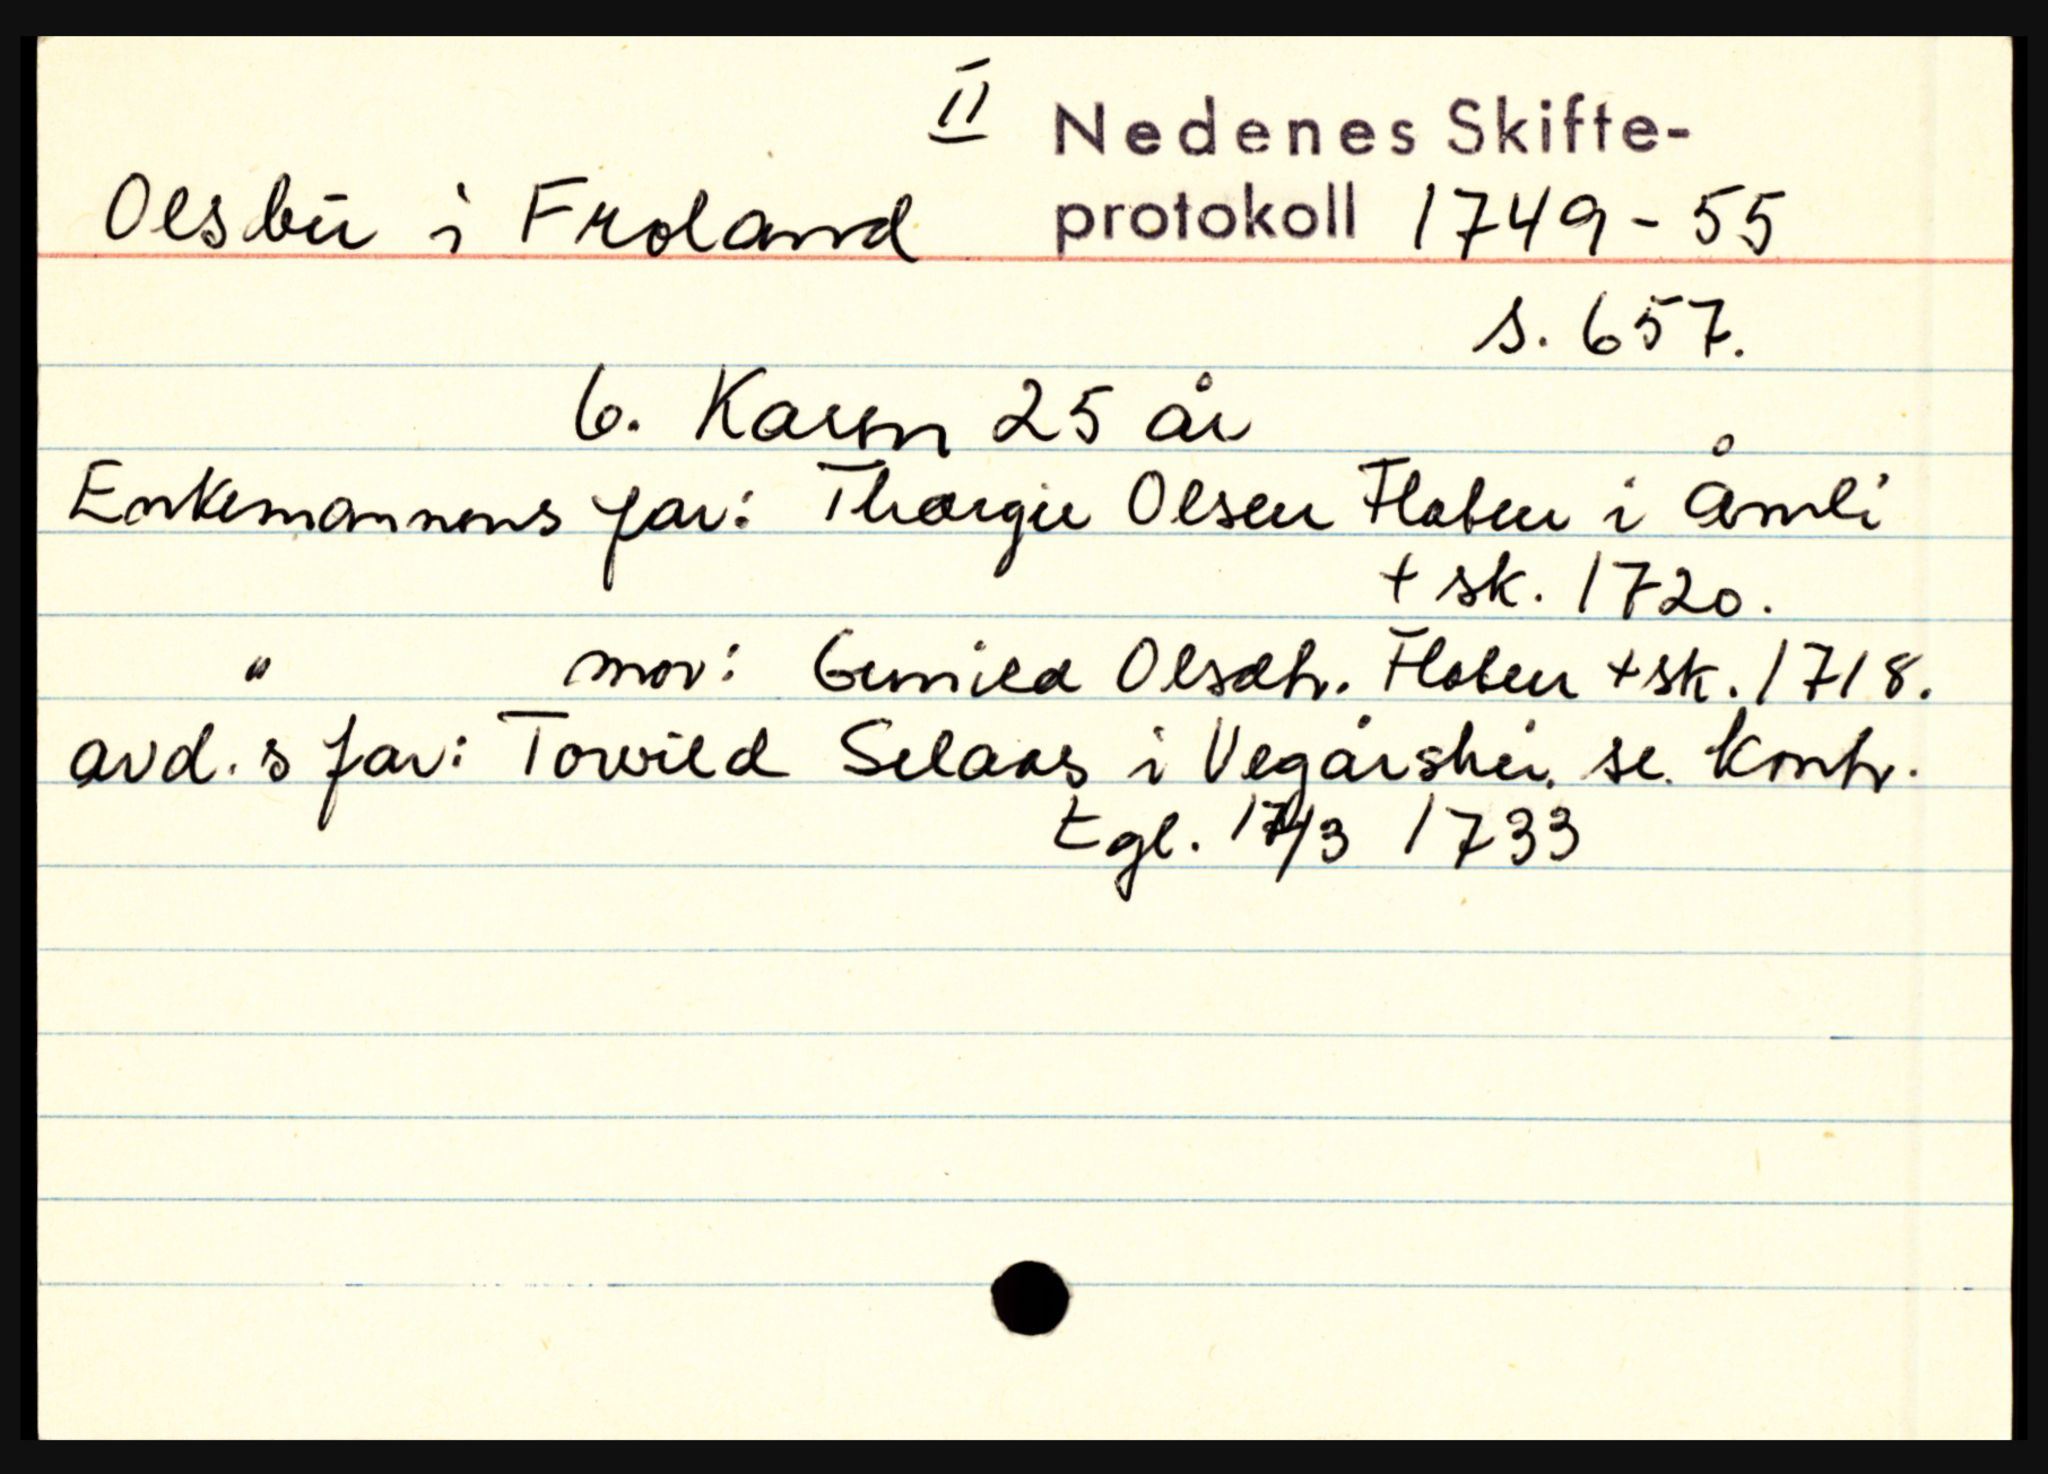 II Nedenes Skifte-
Olsbu i Froland protokoll 1749-55
s. 657.
6. Karen 25 år
Enkemannens far: Thorgu Olsen Flaten i Åmli
+ sk. 1720.
" mor: Gunild Olsdtr. Flaten + sk. 1718.
avd. s far: Torvild Selaas i Vegårshei. se. kontr.
tgl. 17/3 1733